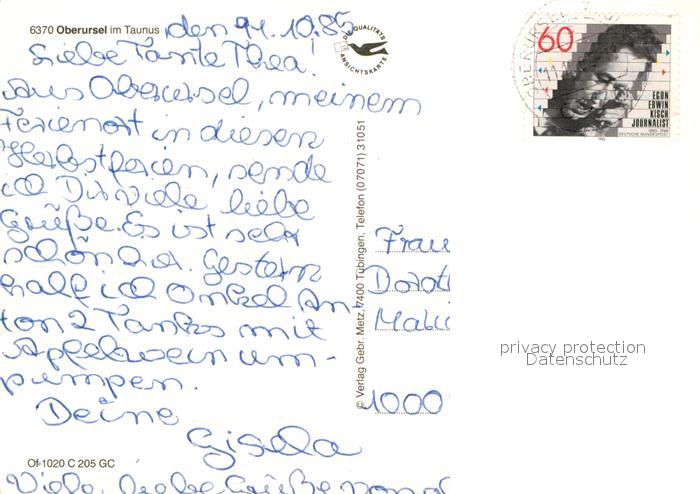 6370 Oberursel im Taunus
den 91.10.85
Liebe Tante Thea!
Aus Oberursel, meinem
Ferienort in diesen
Herbstferien, sende
ich Dir viele liebe
Grüße. Es ist sehr
schön hier. Gestern
half ich Onkel An-
ton 2 Tanks mit
Apfelwein um-
pumpen.
Deine
Gisela
Viele liebe Grüße von
Of 1020 C 205 GC
QUALITÄTS
ANSICHTSKARTE
© Verlag Gebr. Metz, 7400 Tübingen, Telefon (07071) 31051
60
EGON
ERWIN
KISCH
JOURNALIST
1885-1948
DEUTSCHE BUNDESPOST
1985
OBERURSEL
Frau
Dorot
1000
privacy protection
Datenschutz